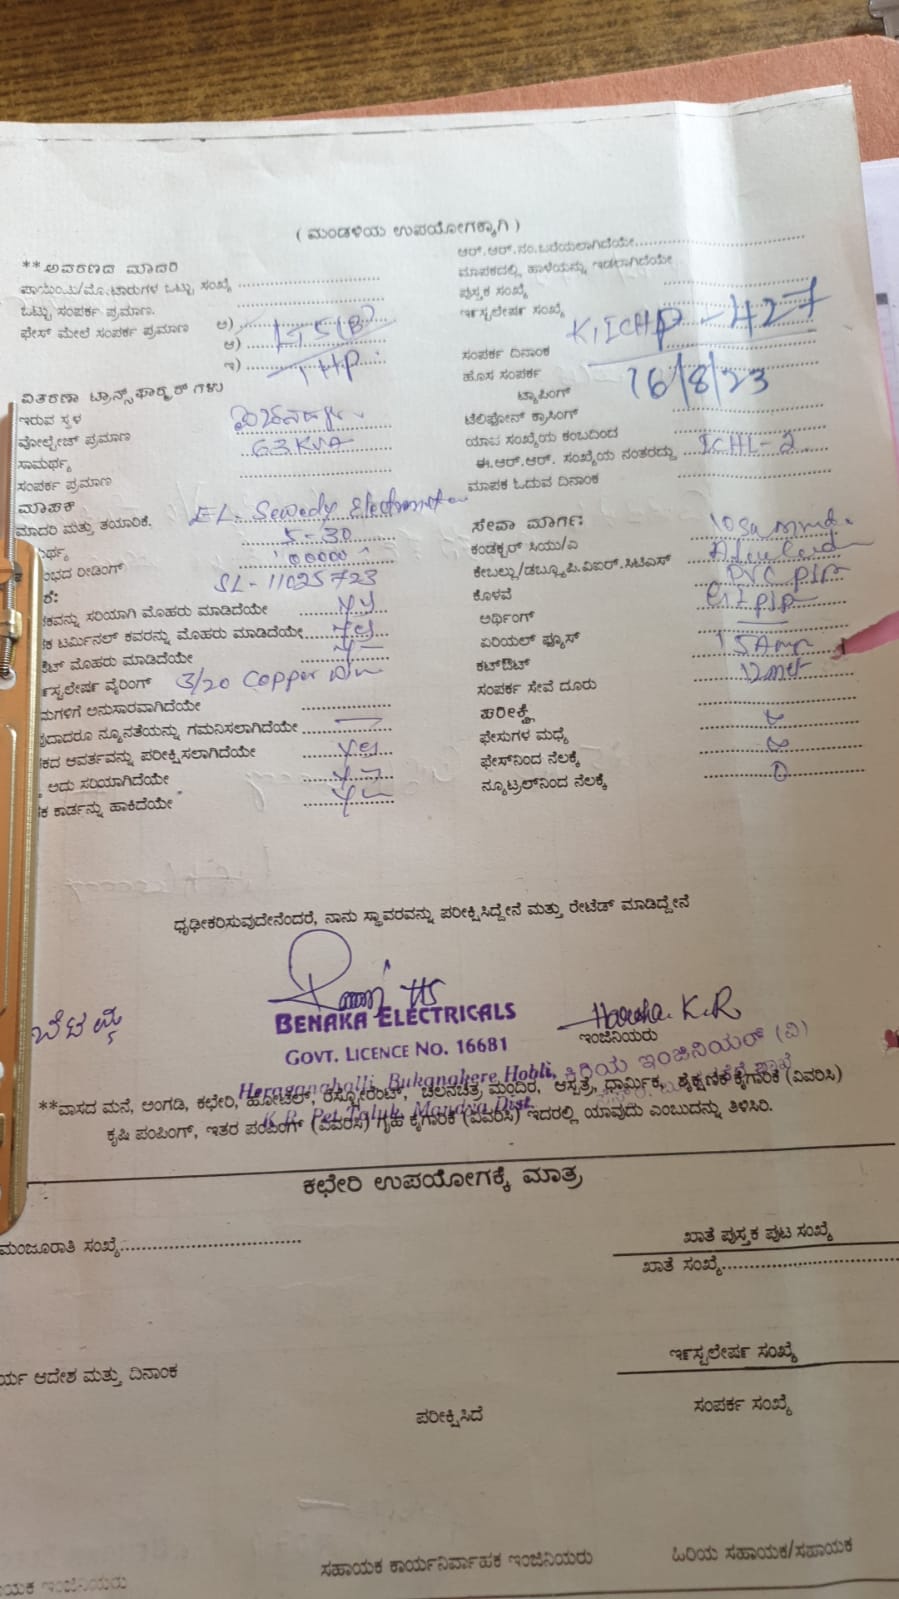 ( ಮಂಡಳಿಯ ಉಪಯೋಗಕ್ಕಾಗಿ )
**ಆವರಣದ ಮಾದರಿ
ಪಾಯಿಂಯಿ/ಮೊ.ಟಾರುಗಳ ಒಟ್ಟು ಸಂಖ್ಯೆ
ಒಟ್ಟು ಸಂಪರ್ಕ ಪ್ರಮಾಣ.
ಫೇಸ್ ಮೇಲೆ ಸಂಪರ್ಕ ಪ್ರಮಾಣ ಅ)
ಆ)
ಇ) 1 HP
ವಿತರಣಾ ಟ್ರಾನ್ಸ್‌ಫಾರ್ಮರ್‌ಗಳು
ಇರುವ ಸ್ಥಳ
ವೋಲ್ಟೇಜ್ ಪ್ರಮಾಣ 63 KVA
ಸಾಮರ್ಥ್ಯ
ಸಂಪರ್ಕ ಪ್ರಮಾಣ
ಮಾಪಕ
ಮಾದರಿ ಮತ್ತು ತಯಾರಿಕೆ. EL-Sewedy Electrometer
ರ್ಥ್ಯ 5-30
ಂಭದ ರೀಡಿಂಗ್ 00000
SL-11025723
ಕವನ್ನು ಸರಿಯಾಗಿ ಮೊಹರು ಮಾಡಿದೆಯೇ
ಕ ಟರ್ಮಿನಲ್ ಕವರನ್ನು ಮೊಹರು ಮಾಡಿದೆಯೇ Yes
ಮೊಹರು ಮಾಡಿದೆಯೇ
ಸ್ಟಲೇಷನ್ ವೈರಿಂಗ್ 3/20 Copper
ಮಗಳಿಗೆ ಅನುಸಾರವಾಗಿದೆಯೇ
ದಾದರೂ ನ್ಯೂನತೆಯನ್ನು ಗಮನಿಸಲಾಗಿದೆಯೇ
ಕದ ಆವರ್ತವನ್ನು ಪರೀಕ್ಷಿಸಲಾಗಿದೆಯೇ Yes
ಅದು ಸರಿಯಾಗಿದೆಯೇ
ಕ ಕಾರ್ಡನ್ನು ಹಾಕಿದೆಯೇ
ಆರ್.ಆರ್.ನಂ.ಬರೆಯಲಾಗಿದೆಯೇ
ಮಾಪಕದಲ್ಲಿ ಹಾಳೆಯನ್ನು ಇಡಲಾಗಿದೆಯೇ
ಪುಸ್ತಕ ಸಂಖ್ಯೆ
ಇನ್‌ಸ್ಟಲೇಷನ್ ಸಂಖ್ಯೆ KIICHP-427
ಸಂಪರ್ಕ ದಿನಾಂಕ
ಹೊಸ ಸಂಪರ್ಕ 16/8/23
ಟ್ಯಾಪಿಂಗ್
ಟೆಲಿಫೋನ್ ಕ್ರಾಸಿಂಗ್
ಯಾವ ಸಂಖ್ಯೆಯ ಕಂಬದಿಂದ
ಈ.ಆರ್.ಆರ್. ಸಂಖ್ಯೆಯ ನಂತರದ್ದು ICHL-2
ಮಾಪಕ ಓದುವ ದಿನಾಂಕ
ಸೇವಾ ಮಾರ್ಗ:
ಕಂಡಕ್ಟರ್ ಸಿಯು/ಎ
ಕೇಬಲ್ಲು/ಡಬ್ಲ್ಯೂ.ಪಿ.ವಿಐರ್.ಸಿಟಿಎಸ್
ಕೊಳವೆ PVC pipe
ಅರ್ಥಿಂಗ್ GI pipe
ಏರಿಯಲ್ ಫ್ಯೂಸ್
ಕಟ್‌ಔಟ್ 15 Amp
ಸಂಪರ್ಕ ಸೇವೆ ದೂರು 12 met
ಪರೀಕ್ಷೆ
ಫೇಸುಗಳ ಮಧ್ಯೆ
ಫೇಸ್‌ನಿಂದ ನೆಲಕ್ಕೆ
ನ್ಯೂಟ್ರಲ್‌ನಿಂದ ನೆಲಕ್ಕೆ 0
ಧೃಢೀಕರಿಸುವುದೇನೆಂದರೆ, ನಾನು ಸ್ಥಾವರವನ್ನು ಪರೀಕ್ಷಿಸಿದ್ದೇನೆ ಮತ್ತು ರೇಟೆಡ್ ಮಾಡಿದ್ದೇನೆ
BENAKA ELECTRICALS
GOVT. LICENCE NO. 16681
Heraganahalli, Bukanakere Hobli,
K.R. Pet Taluk, Mandya Dist.
Harsha. K.R
ಇಂಜಿನಿಯರು
ಕಿರಿಯ ಇಂಜಿನಿಯರ್ (ವಿ)
**ವಾಸದ ಮನೆ, ಅಂಗಡಿ, ಕಛೇರಿ, ಹೋಟೆಲ್, ರೆಸ್ಟೋರೆಂಟ್, ಚಲನಚಿತ್ರ ಮಂದಿರ, ಆಸ್ಪತ್ರೆ, ಧಾರ್ಮಿಕ, ಶೈಕ್ಷಣಿಕ ಕೈಗಾರಿಕೆ (ವಿವರಿಸಿ)
ಕೃಷಿ ಪಂಪಿಂಗ್, ಇತರ ಪಂಪಿಂಗ್ (ವಿವರಿಸಿ) ಗೃಹ ಕೈಗಾರಿಕೆ (ವಿವರಿಸಿ) ಇದರಲ್ಲಿ ಯಾವುದು ಎಂಬುದನ್ನು ತಿಳಿಸಿರಿ.
ಕಛೇರಿ ಉಪಯೋಗಕ್ಕೆ ಮಾತ್ರ
ಮಂಜೂರಾತಿ ಸಂಖ್ಯೆ
ಖಾತೆ ಪುಸ್ತಕ ಪುಟ ಸಂಖ್ಯೆ
ಖಾತೆ ಸಂಖ್ಯೆ
ಇನ್‌ಸ್ಟಲೇಷನ್ ಸಂಖ್ಯೆ
ರ್ಯ ಆದೇಶ ಮತ್ತು ದಿನಾಂಕ
ಪರೀಕ್ಷಿಸಿದೆ
ಸಂಪರ್ಕ ಸಂಖ್ಯೆ
ಯಕ ಇಂಜಿನಿಯರು
ಸಹಾಯಕ ಕಾರ್ಯನಿರ್ವಾಹಕ ಇಂಜಿನಿಯರು
ಹಿರಿಯ ಸಹಾಯಕ/ಸಹಾಯಕ